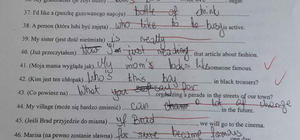 37. I'd like a (puszkę gazowanego napoju) bottle of drink
38. A person (które lubi być zajęta) who like to be busy is active.
39. My sister (jest dość nieśmiała) is really
40. (Już przeczytałam) just reading that article about fashion.
41. (Moja mama wygląda jak) My mom's looks famous.
42. (Kim jest ten chłopak) Who's this boy in black trousers?
43. (Co powiesz na) What say a parade in the streets of our town?
44. My village (może się bardzo zmienić) can a lot of change in the future.
45. (Jeśli Brad przyjedzie do miasta) if Brad, we will go to the cinema.
46. Marisa (na pewno zostanie sławna) for sure became famous